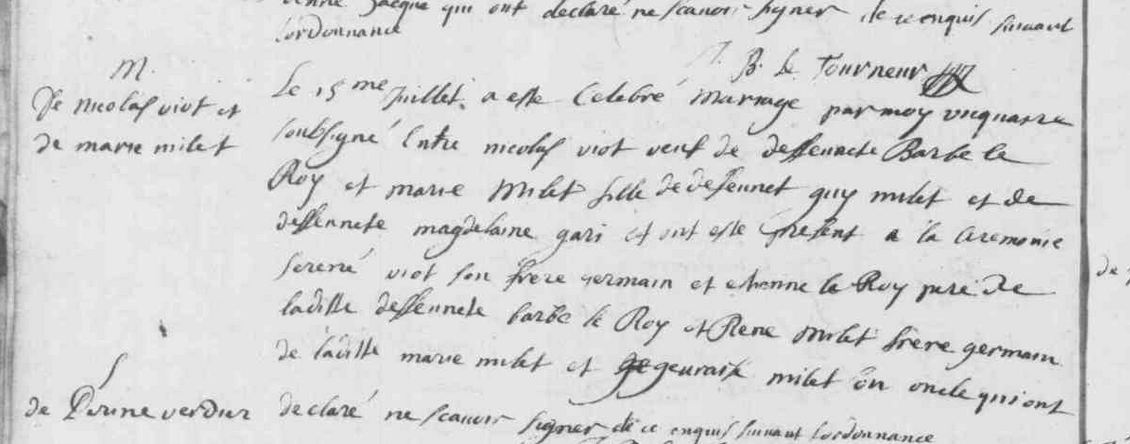 Jacque qui ont declaré ne scauoir signer de ce enquis suiuant
lordonnance
B. le Tourneur
M.
De nicolas viot et
de marie milet
Le 15me Juillet a este Celebré Mariage par moy vicquaire
soubsigné Entre nicolas viot veuf de deffeunete Barbe le
Roy et marie Milet fille de deffeunct guy milet et de
deffeunete magdelaine gari et ont este présent a la ceremonie
serené viot son frere germain et etienne le Roy pere de
laditte deffeunete barbe le Roy et Rene Milet frere germain
de laditte marie milet et geruaise milet son oncle qui ont
declaré ne scauoir signer de ce enquis suiuant lordonnance
S
de Perine verdier
de